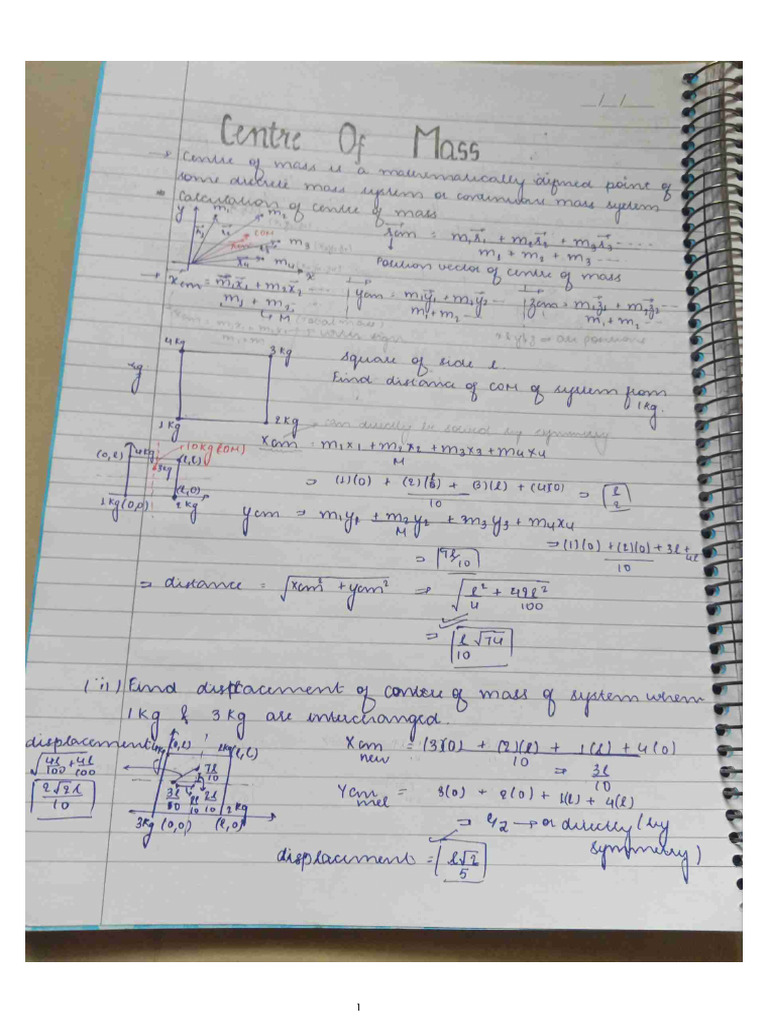 _/_/_
Centre Of Mass
→ Centre of mass is a mathematically defined point of
some discrete mass system or continuous mass system
* Calculation of centre of mass
y m₁ m₂ COM m₃ m₄ x
r⃗cm = m₁r⃗₁ + m₂r⃗₂ + m₃r⃗₃ ....
m₁ + m₂ + m₃ ...
Position vector of centre of mass
→ xcm = m₁x⃗₁ + m₂x⃗₂ | ycm = m₁y⃗₁ + m₂y⃗₂ -- | zcm = m₁z⃗₁ + m₂z⃗₂ ...
m₁ + m₂ m₁ + m₂ - m₁ + m₂ ...
↳ M (total mass)
4kg 3kg
square of side l.
eg Find distance of COM of system from
1kg.
1kg 2kg
can directly be solved by symmetry
xcm = m₁x₁ + m₂x₂ + m₃x₃ + m₄x₄
M
(0,l) 4kg 10kg (COM)
3kg (l,l)
(l,0)
1kg (0,0) 2kg
⇒ (1)(0) + (2)(l) + (3)(l) + (4)(0) ⇒ l/2
10
ycm = m₁y₁ + m₂y₂ + m₃y₃ + m₄x₄
M
⇒ (1)(0) + (2)(0) + 3l + 4l
10
⇒ 7l/10
⇒ distance = √xcm² + ycm² ⇒ √l²/4 + 49l²/100
⇒ l/10 √74
(ii) Find displacement of centre of mass of system when
1kg & 3kg are interchanged.
displacement
√4l/100 + 4l/100
2√2l/10
(0,l) 1kg (l,l)
7l/10
3l/10 2l/10
2kg
3kg (0,0) (l,0)
Xcm new = (3)(0) + (2)(l) + 1(l) + 4(0)
10
⇒ 3l/10
Ycm = 3(0) + 2(0) + 1(l) + 4(l)
⇒ l/2 → or directly (by
symmetry)
displacement = l√2/5
1